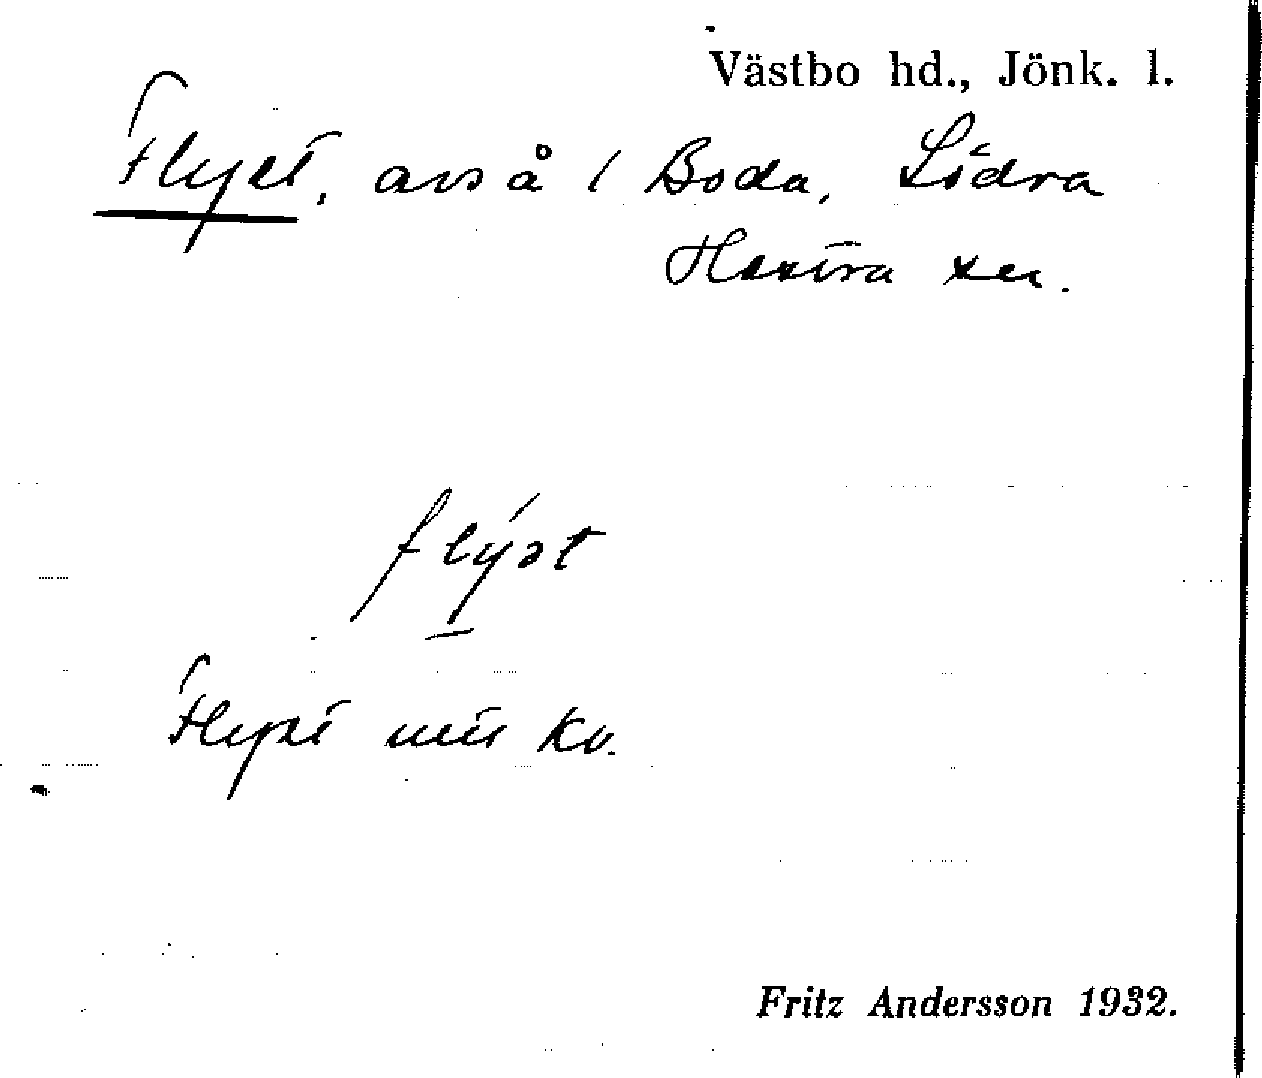 Västbo hd., Jönk. l.
Flyet, avs å i Boda, Södra
Hestra sn.
flýət
Flyet utr kv.
Fritz Andersson 1932.